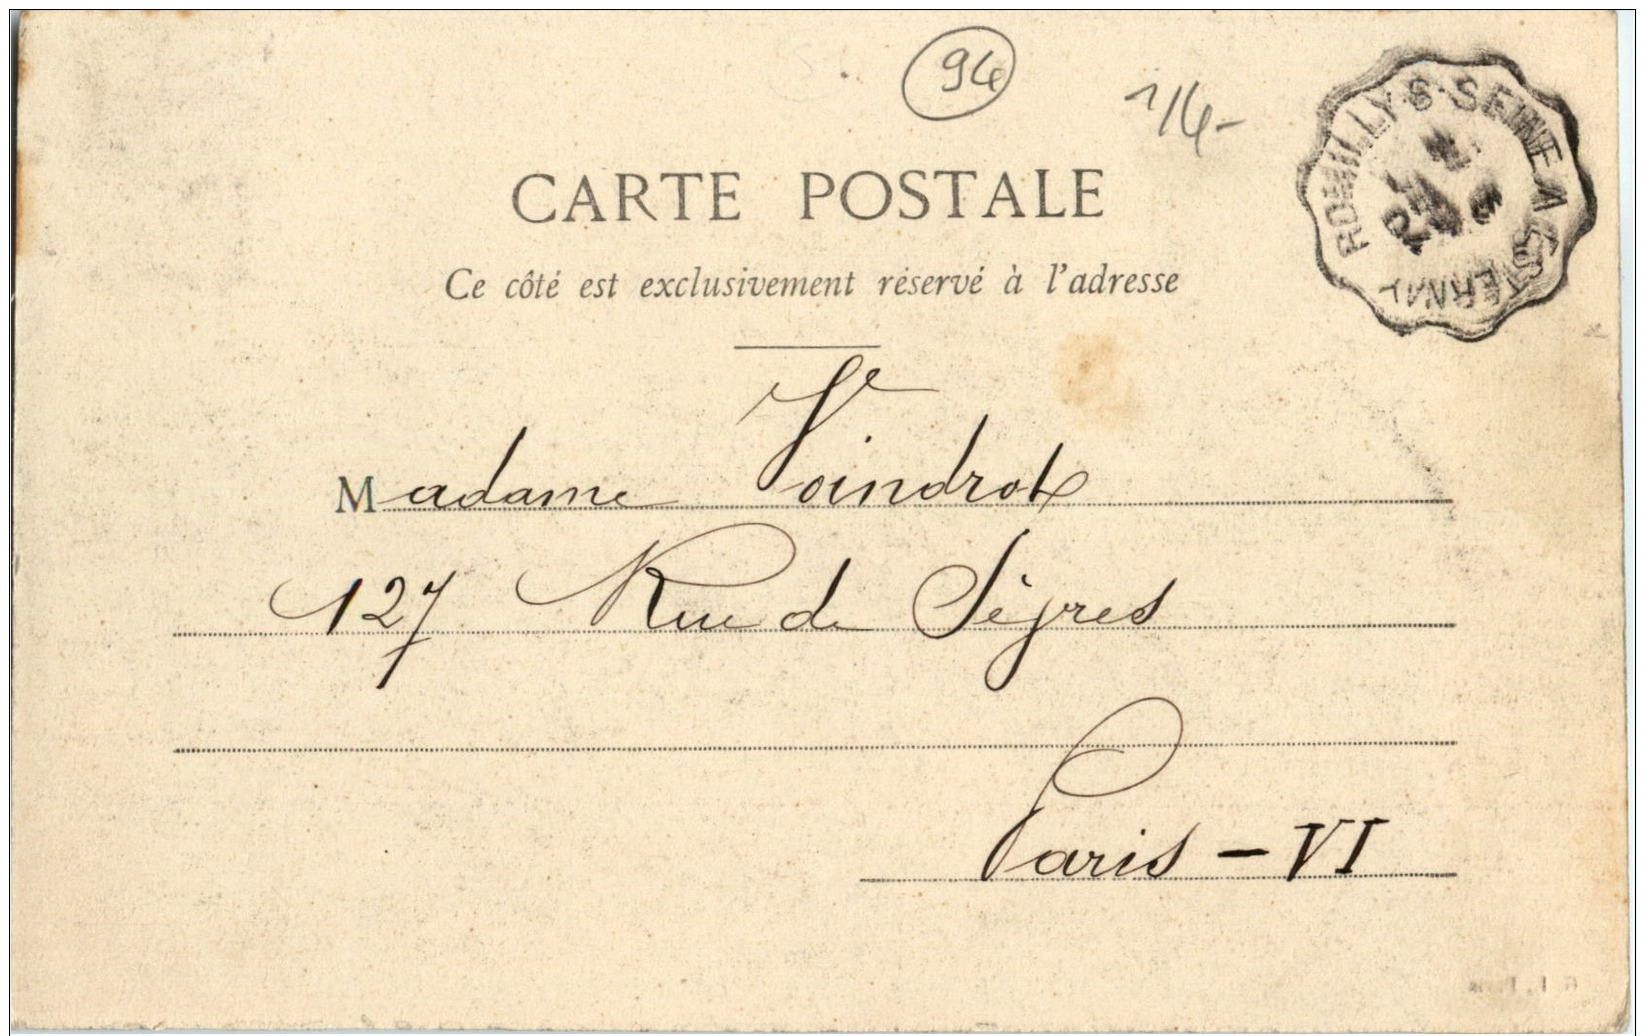 94
1/4-
ROMILLY-S-SEINE A
CARTE POSTALE
Ce côté est exclusivement réservé à l'adresse
Madame Voindrot
127 Rue de Sèvres
Paris - VI